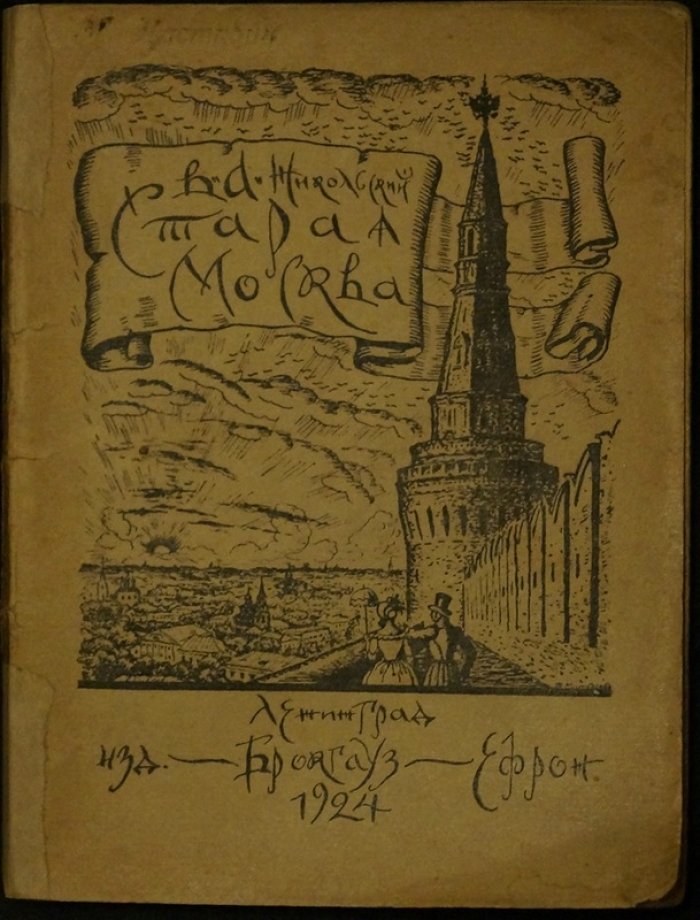 В. А. Никольский
Старая
Москва
Ленинград
изд. — Брокгауз — Ефрон.
1924